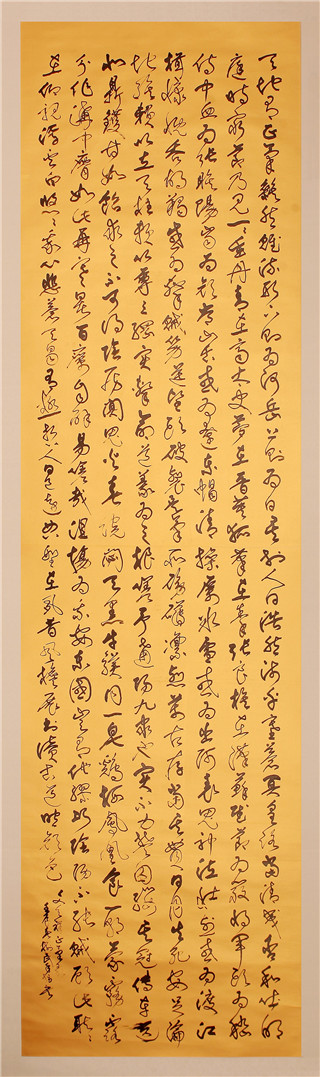 天地有正氣雜然賦流形下則為河嶽上則為日星於人曰浩然沛乎塞蒼冥皇路當清夷含和吐明
庭時窮節乃見一一垂丹青在齊太史簡在晉董狐筆在秦張良椎在漢蘇武節為嚴將軍頭為嵇
侍中血為張睢陽齒為顏常山舌或為遼東帽清操厲冰雪或為出師表鬼神泣壯烈或為渡江
楫慷慨吞胡羯或為擊賊笏逆豎頭破裂是氣所磅礴凜烈萬古存當其貫日月生死安足論
地維賴以立天柱賴以尊三綱實繫命道義為之根嗟予遘陽九隸也實不力楚囚纓其冠傳車送窮
北鼎鑊甘如飴求之不可得陰房闃鬼火春院閟天黑牛驥同一皂雞棲鳳凰食一朝蒙霧露
分作溝中瘠如此再寒暑百癘自辟易嗟哉沮洳場為我安樂國豈有他繆巧陰陽不能賊顧此耿耿
在仰視浮雲白悠悠我心悲蒼天曷有極哲人日已遠典型在夙昔風檐展書讀古道照顏色
文天祥正氣歌